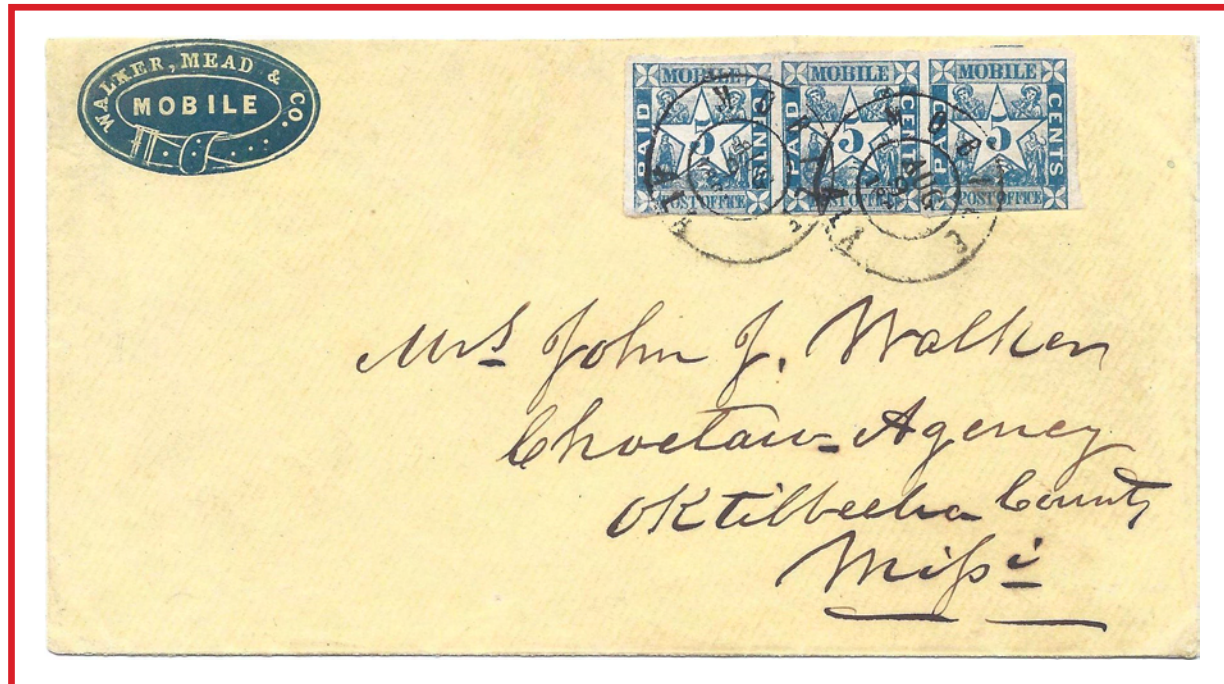 WALKER, MEAD & CO.
MOBILE
MOBILE
PAID
5
CENTS
POST OFFICE
MOBILE
PAID
5
CENTS
POST OFFICE
MOBILE
PAID
5
CENTS
POST OFFICE
MOBILE
ALA
AUG
MOBILE
ALA
Mrs John J. Walker
Choctaw Agency
Oktibbeha County
Missi